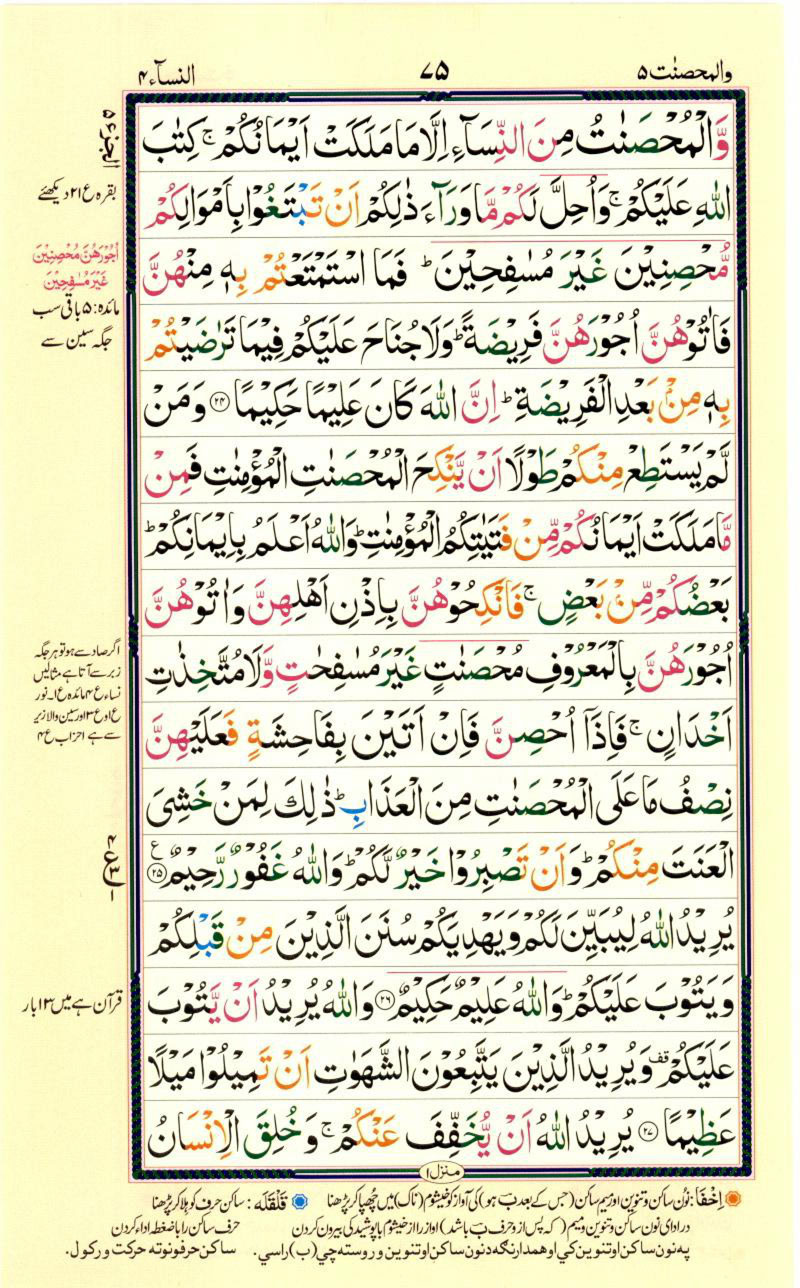 والمحصنٰت ۵
۷۵
النسآء ۴
وَّالْمُحْصَنٰتُ مِنَ النِّسَآءِ اِلَّا مَا مَلَكَتْ اَيْمَانُكُمْ ۚ كِتٰبَ
اللّٰهِ عَلَيْكُمْ ۚ وَاُحِلَّ لَكُمْ مَّا وَرَآءَ ذٰلِكُمْ اَنْ تَبْتَغُوْا بِاَمْوَالِكُمْ
مُّحْصِنِيْنَ غَيْرَ مُسٰفِحِيْنَ ؕ فَمَا اسْتَمْتَعْتُمْ بِهٖ مِنْهُنَّ
فَاٰتُوْهُنَّ اُجُوْرَهُنَّ فَرِيْضَةً ؕ وَلَا جُنَاحَ عَلَيْكُمْ فِيْمَا تَرٰضَيْتُمْ
بِهٖ مِنْۢ بَعْدِ الْفَرِيْضَةِ ؕ اِنَّ اللّٰهَ كَانَ عَلِيْمًا حَكِيْمًا ۲۴ وَمَنْ
لَّمْ يَسْتَطِعْ مِنْكُمْ طَوْلًا اَنْ يَّنْكِحَ الْمُحْصَنٰتِ الْمُؤْمِنٰتِ فَمِنْ
مَّا مَلَكَتْ اَيْمَانُكُمْ مِّنْ فَتَيٰتِكُمُ الْمُؤْمِنٰتِ ؕ وَاللّٰهُ اَعْلَمُ بِاِيْمَانِكُمْ ؕ
بَعْضُكُمْ مِّنْۢ بَعْضٍ ۚ فَانْكِحُوْهُنَّ بِاِذْنِ اَهْلِهِنَّ وَاٰتُوْهُنَّ
اُجُوْرَهُنَّ بِالْمَعْرُوْفِ مُحْصَنٰتٍ غَيْرَ مُسٰفِحٰتٍ وَّلَا مُتَّخِذٰتِ
اَخْدَانٍ ۚ فَاِذَآ اُحْصِنَّ فَاِنْ اَتَيْنَ بِفَاحِشَةٍ فَعَلَيْهِنَّ
نِصْفُ مَا عَلَى الْمُحْصَنٰتِ مِنَ الْعَذَابِ ؕ ذٰلِكَ لِمَنْ خَشِىَ
الْعَنَتَ مِنْكُمْ ؕ وَاَنْ تَصْبِرُوْا خَيْرٌ لَّكُمْ ؕ وَاللّٰهُ غَفُوْرٌ رَّحِيْمٌ ۲۵ ع
يُرِيْدُ اللّٰهُ لِيُبَيِّنَ لَكُمْ وَيَهْدِيَكُمْ سُنَنَ الَّذِيْنَ مِنْ قَبْلِكُمْ
وَيَتُوْبَ عَلَيْكُمْ ؕ وَاللّٰهُ عَلِيْمٌ حَكِيْمٌ ۲۶ وَاللّٰهُ يُرِيْدُ اَنْ يَّتُوْبَ
عَلَيْكُمْ قف وَيُرِيْدُ الَّذِيْنَ يَتَّبِعُوْنَ الشَّهَوٰتِ اَنْ تَمِيْلُوْا مَيْلًا
عَظِيْمًا ۲۷ يُرِيْدُ اللّٰهُ اَنْ يُّخَفِّفَ عَنْكُمْ ۚ وَخُلِقَ الْاِنْسَانُ
منزل ۱
الجزء ۵
بقرہ ع ۲۱ دیکھئے
اُجُوْرَهُنَّ مُحْصِنِيْنَ
غَيْرَ مُسٰفِحِيْنَ
مائدہ: ۵ باقی سب
جگہ سین سے
اگر صاد سے ہو تو ہر جگہ
زبر سے آتا ہے مثالیں
نساء ع ۴ مائدہ ع ۱۔ نور
ع ۱ و ع ۳ اور سین والا زیر
سے ہے احزاب ع ۴
۴
ع ۳
۱
قرآن ہے میں ۱۳ بار
اِخْفَا: نُون ساکن و تنوین اور میم ساکن (جس کے بعد بؔ ہو) کی آواز کو خیشوم (ناک) میں چھپا کر پڑھنا
قَلْقَلَه: ساکن حرف کو ہلا کر پڑھنا
در ادای نون ساکن و تنوین و میم (که پس از و حرف ب باشد) اواز را از خیشوم با پوشیدگی بیرون کردن
حرف ساکن را با ضغطه اداء کردن
په نون ساکن او تنوین کي او همدارنګه د نون ساکن او تنوین وروسته چي (ب) راسي.
ساکن حرفونو ته حرکت ورکول.